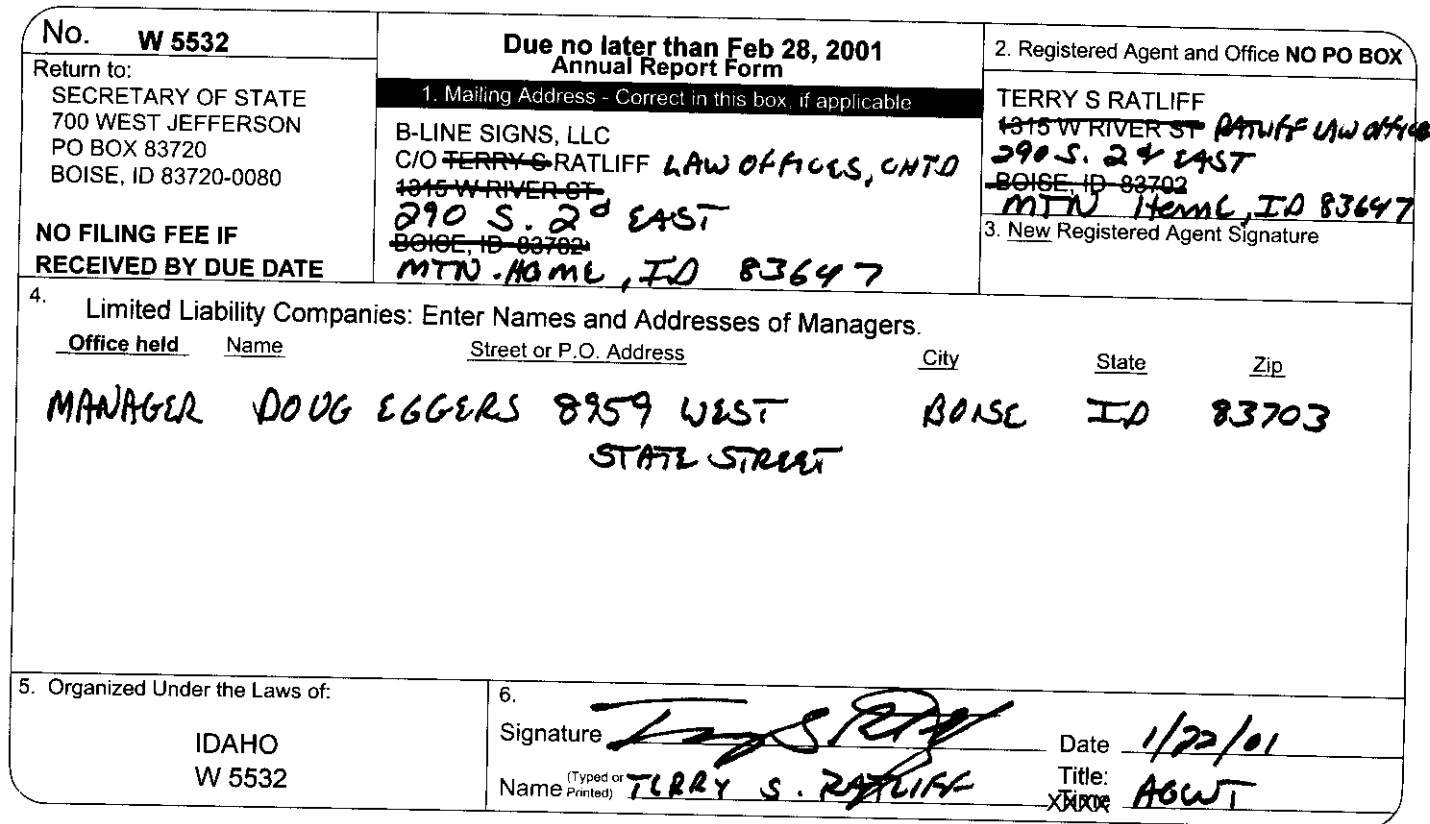 No. W 5532
Return to:
SECRETARY OF STATE
700 WEST JEFFERSON
PO BOX 83720
BOISE, ID 83720-0080
NO FILING FEE IF
RECEIVED BY DUE DATE
Due no later than Feb 28, 2001
Annual Report Form
1. Mailing Address - Correct in this box, if applicable
B-LINE SIGNS, LLC
C/O TERRY S RATLIFF LAW OFFICES, CHTD
1315 W RIVER ST
290 S. 2d EAST
BOISE, ID 83702
MTN. HOME, ID 83647
2. Registered Agent and Office NO PO BOX
TERRY S RATLIFF
1315 W RIVER ST RATLIFF LAW OFFICES
290 S. 2d EAST
BOISE, ID 83702
MTN HOME, ID 83647
3. New Registered Agent Signature
4. Limited Liability Companies: Enter Names and Addresses of Managers.
Office held Name Street or P.O. Address City State Zip
MANAGER DOUG EGGERS 8959 WEST BOISE ID 83703
STATE STREET
5. Organized Under the Laws of:
IDAHO
W 5532
6.
Signature Terry S Ratliff Date 1/22/01
Name (Typed or Printed) TERRY S. RATLIFF Title: AGENT